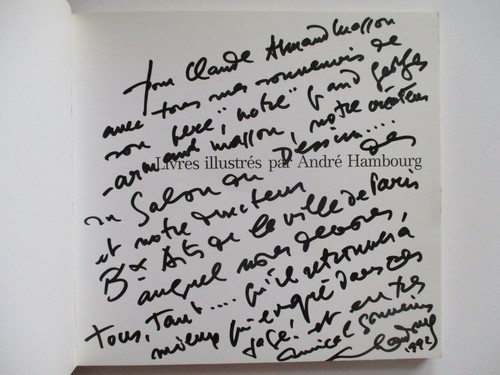 pour Claude Armand Masson
avec tous mes souvenirs de
son père, "notre" grand georges
-armand masson, notre créateur
Livres illustrés par André Hambourg
du Salon du Dessin.... 
et notre directeur des
Bx Arts de la ville de Paris
auquel nous devons,
tous, tant.... qu'il retrouvera
mieux qu'évoqué dans ces
pages! et en très
amical souvenir
Hambourg
1992